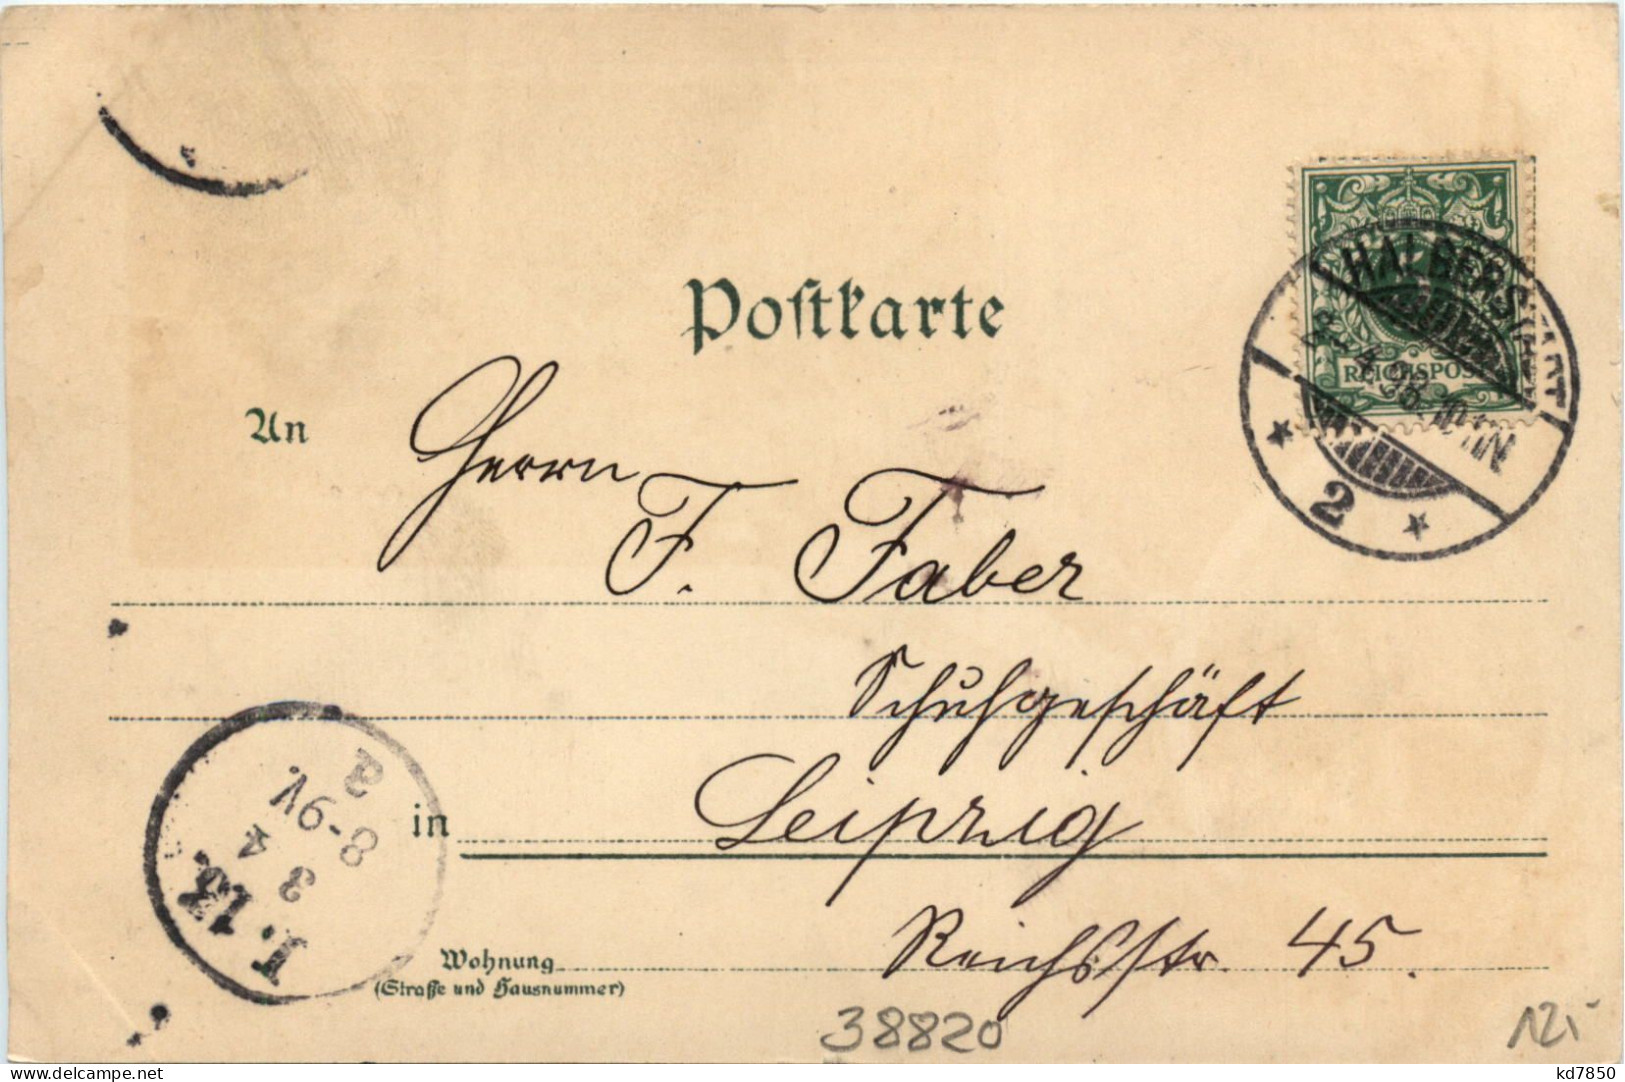 Postkarte
HALBERSTADT
REICHSPOST
2
An
Herrn
F. Faber
Schuhgeschäft
in Leipzig
L. 13.
3
4
8-9V.
a
Wohnung
(Straße und Hausnummer)
Reichsstr. 45.
38820
12,-
kd7850